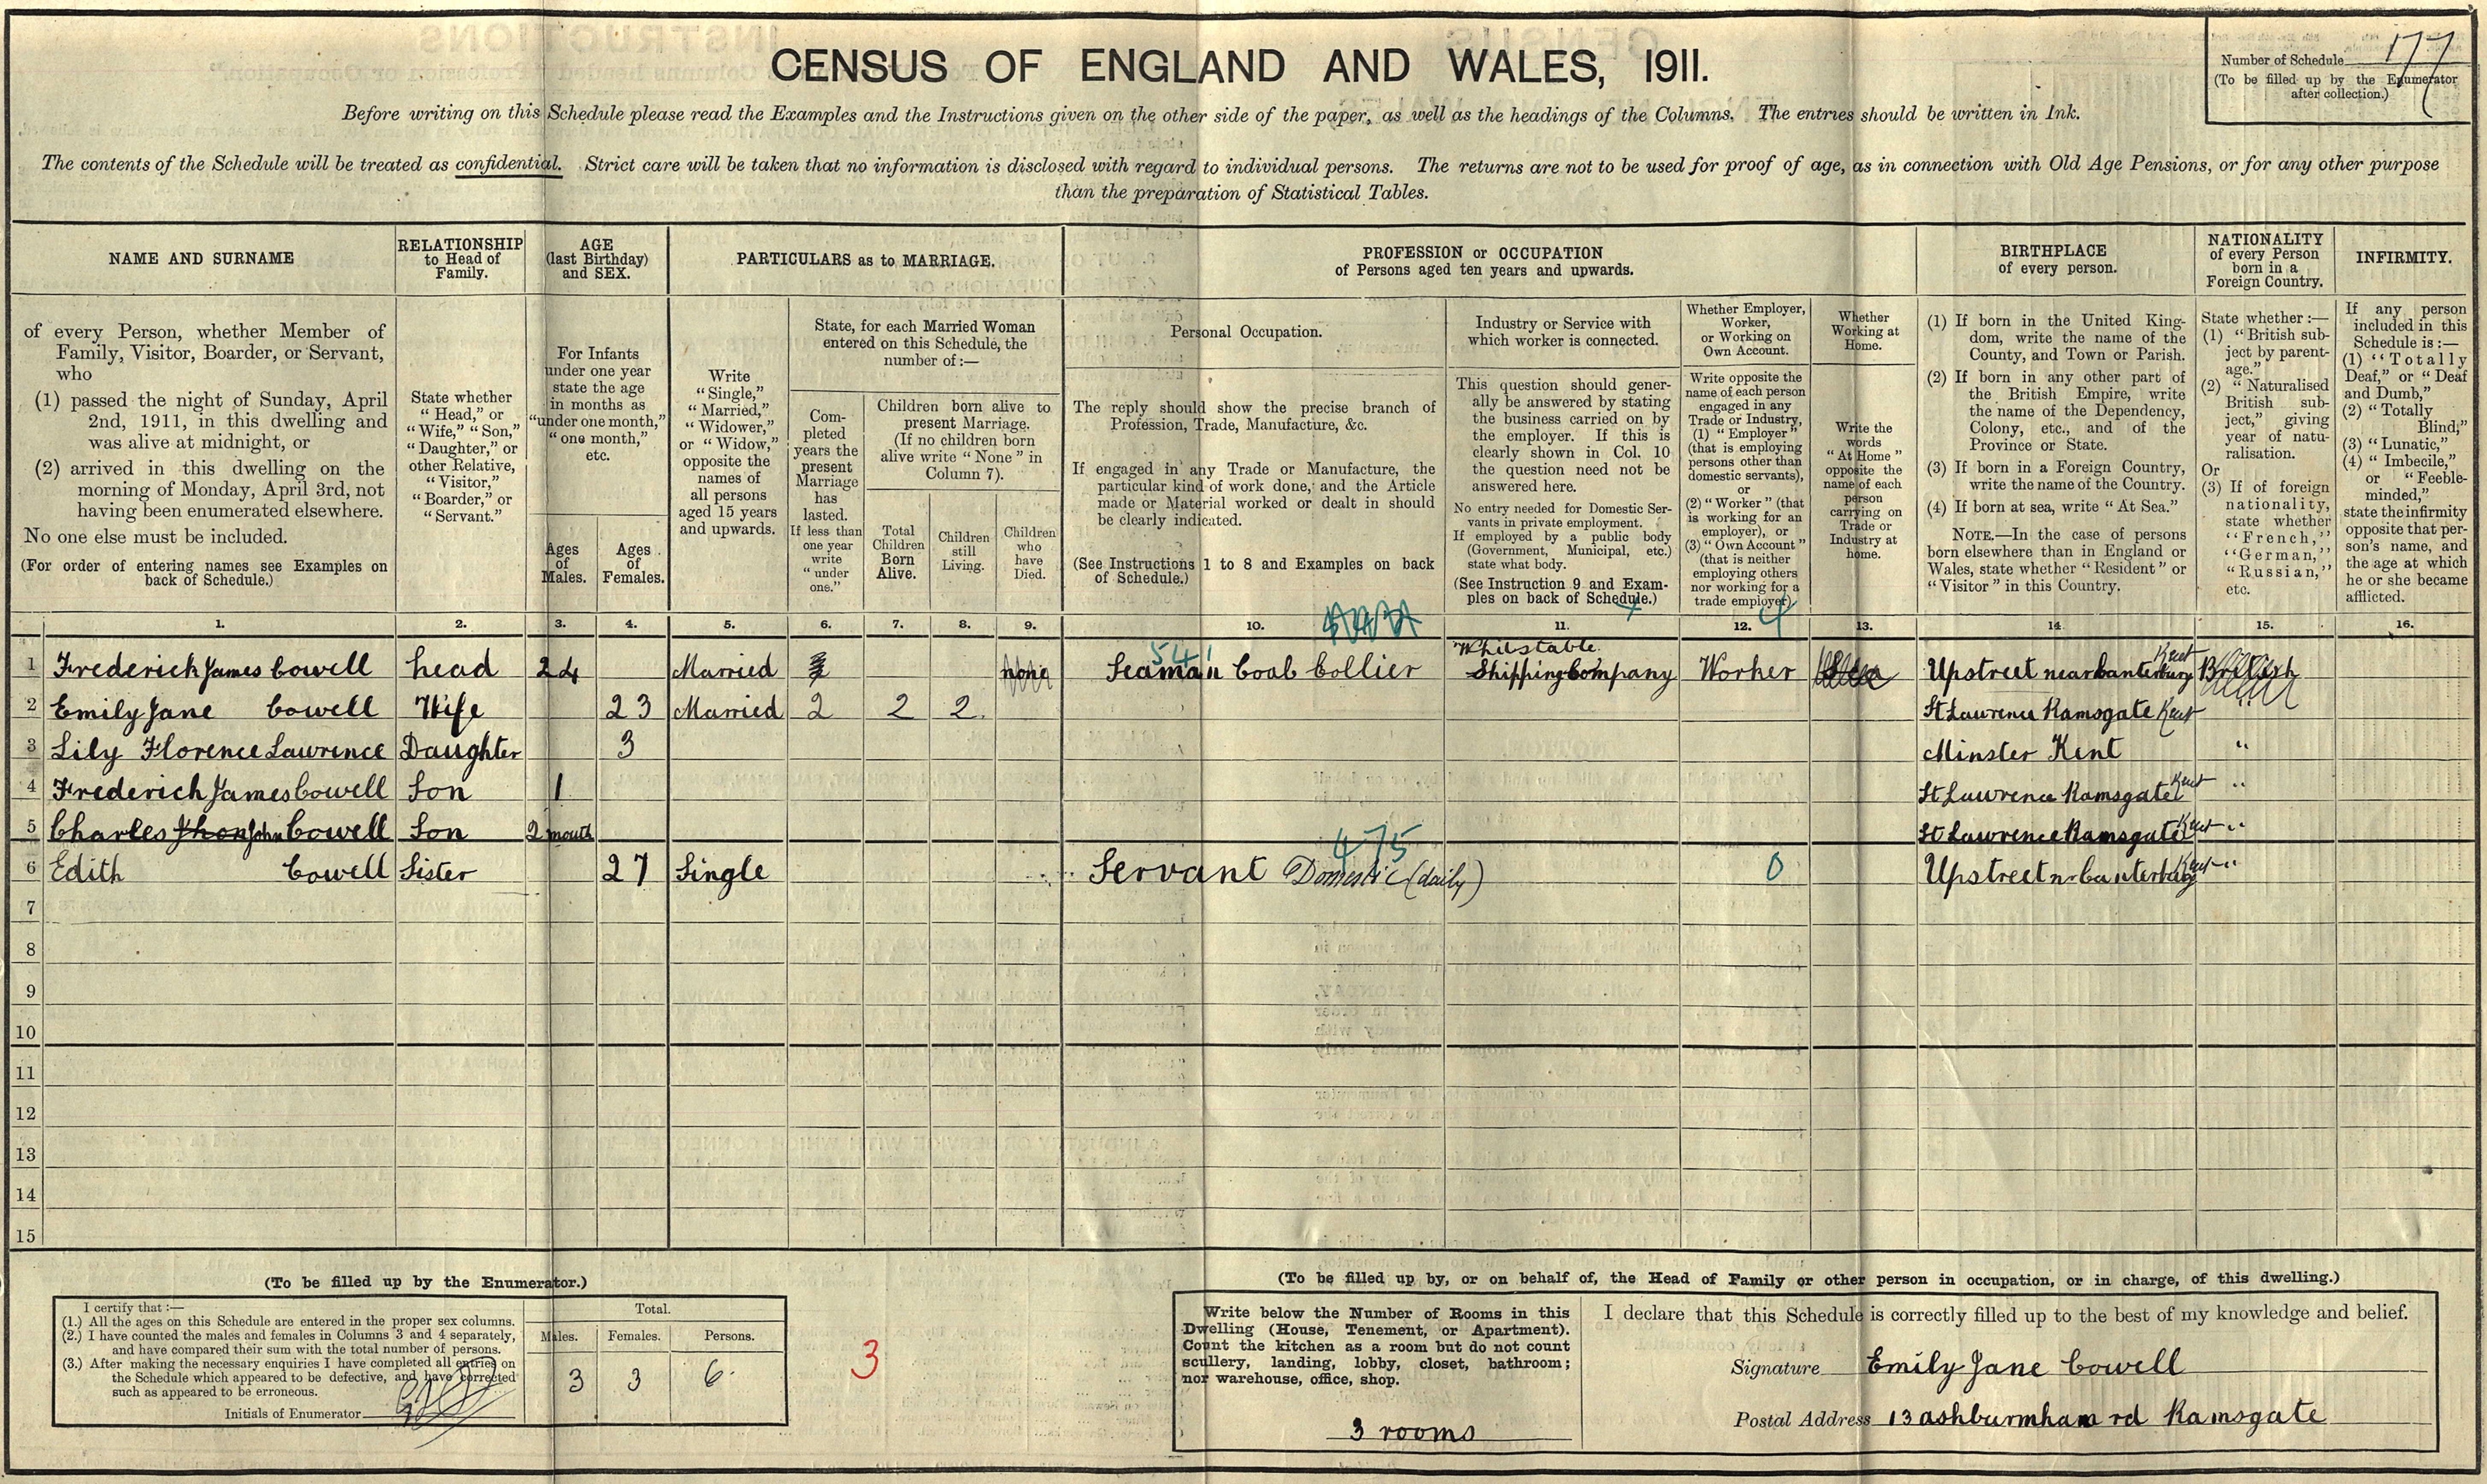 CENSUS OF ENGLAND AND WALES, 1911.
Number of Schedule 177
(To be filled up by the Enumerator
after collection.)
Before writing on this Schedule please read the Examples and the Instructions given on the other side of the paper, as well as the headings of the Columns. The entries should be written in Ink.
The contents of the Schedule will be treated as confidential. Strict care will be taken that no information is disclosed with regard to individual persons. The returns are not to be used for proof of age, as in connection with Old Age Pensions, or for any other purpose
than the preparation of Statistical Tables.
NAME AND SURNAME
of every Person, whether Member of
Family, Visitor, Boarder, or Servant,
who
(1) passed the night of Sunday, April
2nd, 1911, in this dwelling and
was alive at midnight, or
(2) arrived in this dwelling on the
morning of Monday, April 3rd, not
having been enumerated elsewhere.
No one else must be included.
(For order of entering names see Examples on
back of Schedule.)
RELATIONSHIP
to Head of
Family.
State whether
"Head," or
"Wife," "Son,"
"Daughter," or
other Relative,
"Visitor,"
"Boarder," or
"Servant."
AGE
(last Birthday)
and SEX.
For Infants
under one year
state the age
in months as
"under one month,"
"one month,"
etc.
Ages
of
Males.
Ages
of
Females.
PARTICULARS as to MARRIAGE.
Write
"Single,"
"Married,"
"Widower,"
or "Widow,"
opposite the
names of
all persons
aged 15 years
and upwards.
State, for each Married Woman
entered on this Schedule, the
number of:—
Com-
pleted
years the
present
Marriage
has
lasted.
If less than
one year
write
"under
one."
Children born alive to
present Marriage.
(If no children born
alive write "None" in
Column 7).
Total
Children
Born
Alive.
Children
still
Living.
Children
who
have
Died.
PROFESSION or OCCUPATION
of Persons aged ten years and upwards.
Personal Occupation.
The reply should show the precise branch of
Profession, Trade, Manufacture, &c.
If engaged in any Trade or Manufacture, the
particular kind of work done, and the Article
made or Material worked or dealt in should
be clearly indicated.
(See Instructions 1 to 8 and Examples on back
of Schedule.)
Industry or Service with
which worker is connected.
This question should gener-
ally be answered by stating
the business carried on by
the employer. If this is
clearly shown in Col. 10
the question need not be
answered here.
No entry needed for Domestic Ser-
vants in private employment.
If employed by a public body
(Government, Municipal, etc.)
state what body.
(See Instruction 9 and Exam-
ples on back of Schedule.)
Whether Employer,
Worker,
or Working on
Own Account.
Write opposite the
name of each person
engaged in any
Trade or Industry,
(1) "Employer"
(that is employing
persons other than
domestic servants),
or
(2) "Worker" (that
is working for an
employer), or
(3) "Own Account"
(that is neither
employing others
nor working for a
trade employer)
Whether
Working at
Home.
Write the
words
"At Home"
opposite the
name of each
person
carrying on
Trade or
Industry at
home.
BIRTHPLACE
of every person.
(1) If born in the United King-
dom, write the name of the
County, and Town or Parish.
(2) If born in any other part of
the British Empire, write
the name of the Dependency,
Colony, etc., and of the
Province or State.
(3) If born in a Foreign Country,
write the name of the Country.
(4) If born at sea, write "At Sea."
NOTE.—In the case of persons
born elsewhere than in England or
Wales, state whether "Resident" or
"Visitor" in this Country.
NATIONALITY
of every Person
born in a
Foreign Country.
State whether:—
(1) "British sub-
ject by parent-
age."
(2) "Naturalised
British sub-
ject," giving
year of natu-
ralisation.
Or
(3) If of foreign
nationality,
state whether
"French,"
"German,"
"Russian,"
etc.
INFIRMITY.
If any person
included in this
Schedule is:—
(1) "Totally
Deaf," or "Deaf
and Dumb,"
(2) "Totally
Blind,"
(3) "Lunatic,"
(4) "Imbecile,"
or "Feeble-
minded,"
state the infirmity
opposite that per-
son's name, and
the age at which
he or she became
afflicted.
1. 2. 3. 4. 5. 6. 7. 8. 9. 10. 11. 12. 13. 14. 15. 16.
4
541
Whitstable
1 Frederick James Cowell head 24 Married none Seaman Coal Collier Shipping Company Worker Upstreet near Canterbury Kent British
2 Emily Jane Cowell Wife 23 Married 2 2 2 St Lawrence Ramsgate Kent "
3 Lily Florence Lawrence Daughter 3 Minster Kent "
4 Frederick James Cowell Son 1 St Lawrence Ramsgate Kent "
5 Charles Jhon John Cowell Son 2 month St Lawrence Ramsgate Kent "
475
6 Edith Cowell Sister 27 Single Servant Domestic (daily) 0 Upstreet nr Canterbury Kent "
7
8
9
10
11
12
13
14
15
(To be filled up by the Enumerator.)
I certify that:—
(1.) All the ages on this Schedule are entered in the proper sex columns.
(2.) I have counted the males and females in Columns 3 and 4 separately,
and have compared their sum with the total number of persons.
(3.) After making the necessary enquiries I have completed all entries on
the Schedule which appeared to be defective, and have corrected
such as appeared to be erroneous.
Initials of Enumerator
Total.
Males. Females. Persons.
3 3 6
3
(To be filled up by, or on behalf of, the Head of Family or other person in occupation, or in charge, of this dwelling.)
Write below the Number of Rooms in this
Dwelling (House, Tenement, or Apartment).
Count the kitchen as a room but do not count
scullery, landing, lobby, closet, bathroom;
nor warehouse, office, shop.
3 rooms
I declare that this Schedule is correctly filled up to the best of my knowledge and belief.
Signature Emily Jane Cowell
Postal Address 13 ashburmham rd Ramsgate